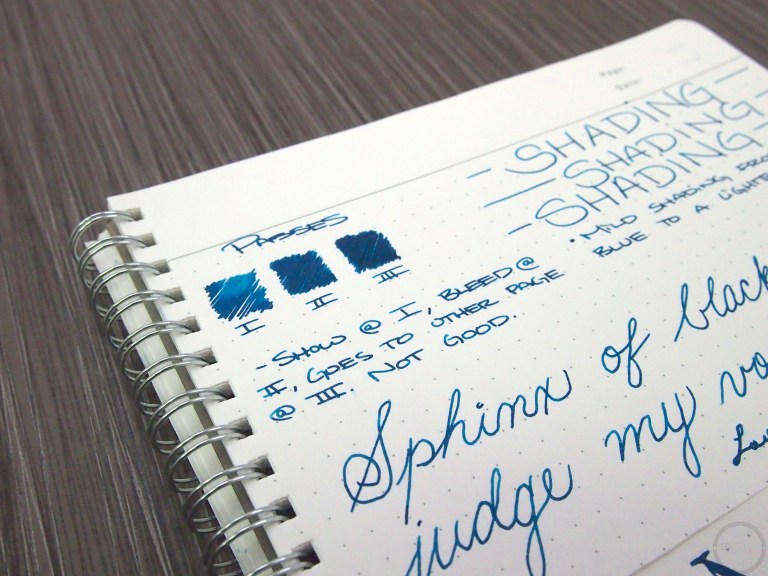 Page:
Date:
-SHADING-
-SHADING-
-SHADING-
• MILD SHADING FROM
BLUE TO A LIGHTE
PASSES
I II III
-SHOW @ I, BLEED @
II, GOES TO OTHER PAGE
@ III. NOT GOOD.
Sphinx of black
judge my vo